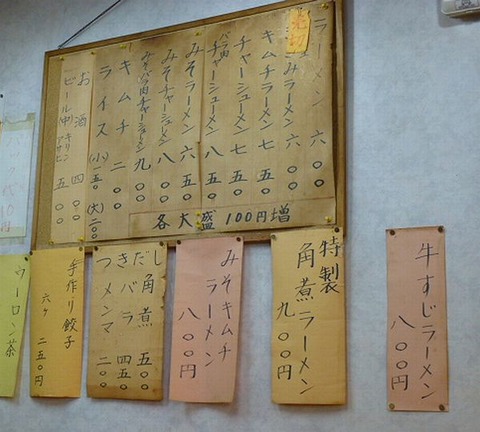 ラーメン 六〇〇
みラーメン 六〇〇
キムチラーメン 七五〇
チャーシューメン 七五〇
バラ肉チャーシューメン 八五〇
みそラーメン 六五〇
みそチャーシューメン 八〇〇
みそバラ肉チャーシューメン 九〇〇
キムチ 二〇〇
ライス (小)一五〇 (大)二〇〇
お酒 四〇〇
ビール(中) キリン アサヒ 五〇〇
各大盛100円増
牛すじラーメン
八〇〇円
特製
角煮ラーメン
九〇〇円
みそキムチ
ラーメン
八〇〇円
角煮 五〇〇
バラ 四五〇
メンマ 二〇〇
手作り餃子
六ヶ 二五〇円
ウーロン茶